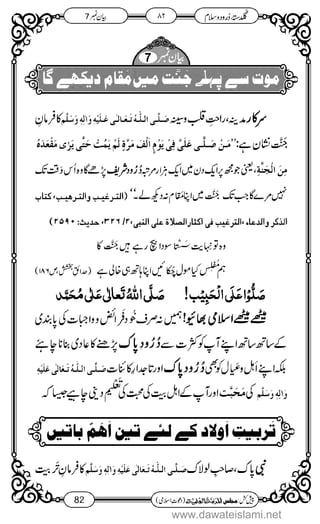 بیان نمبر 7
۸۲
گلدستۂ درود و سلام
بیان نمبر 7
موت سے پہلے جنّت میں مقام دیکھے گا
سرکارِ مدینہ، راحتِ قلب وسینہ صَلَّی اللہُ تَعَالٰی عَلَیْہِ وَاٰلِہٖ وَسَلَّم کا فرمانِ
جنّت نشان ہے: ”مَنْ صَلَّی عَلَیَّ فِیْ یَوْمٍ اَلْفَ مَرَّۃٍ لَمْ یَمُتْ حَتّٰی یَرٰی مَقْعَدَہٗ
مِنَ الْجَنَّۃِ، یعنی جو مجھ پر ایک دن میں ایک ہزار مرتبہ دُرُود شریف پڑھے گا وہ اُس وَقت تک
نہیں مرے گا جب تک جنّت میں اپنا مقام نہ دیکھ لے۔“ (الترغیب والترھیب، کتاب
الذکر والدعاء، الترغیب فی اکثار الصلاۃ علی النبی، ۲/ ۳۲۶، حدیث: ۲۵۹۰)
وہ تو نہایت سَستا سودا بیچ رہے ہیں جنّت کا
ہم مُفلِس کیا مول چُکائیں اپنا ہاتھ ہی خالی ہے (حدائقِ بخشش، ص۱۸۶)
صَلُّوْا عَلَی الْحَبِیْب! صَلَّی اللہُ تَعَالٰی عَلٰی مُحَمَّد
میٹھے میٹھے اسلامی بھائیو! ہمیں نہ صرف خود فرائض و واجبات کی پابندی
کے ساتھ ساتھ اپنے آپ کو کثرت سے دُرُودِ پاک پڑھنے کا عادی بنانا چاہئے
بلکہ اپنے اہل و عیال کو بھی دُرُودِ پاک اور تاجدارِ کائنات صَلَّی اللہُ تَعَالٰی عَلَیْہِ
وَاٰلِہٖ وَسَلَّم کی مَحَبَّت اور آپ کے اہلِ بیت کی محبت کی تعلیم دینی چاہئے جیسا کہ
تربیتِ اولاد کے لئے تین اہم باتیں
نبیِ پاک، صاحبِ لولاک صَلَّی اللہُ تَعَالٰی عَلَیْہِ وَاٰلِہٖ وَسَلَّم کا فرمانِ تربیت
82
www.dawateislami.net